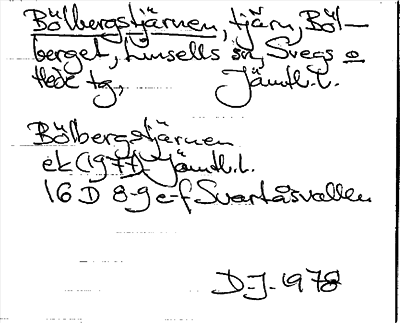 Bölbergstjärnen, tjärn, Böl-
berget, Linsells sn, Svegs o
Hede tg, Jämtl.l.
Bölbergstjärnen
ek (1977) Jämtl.l.
16 D 8-g e-f Svartåsvallen
D-J-1978